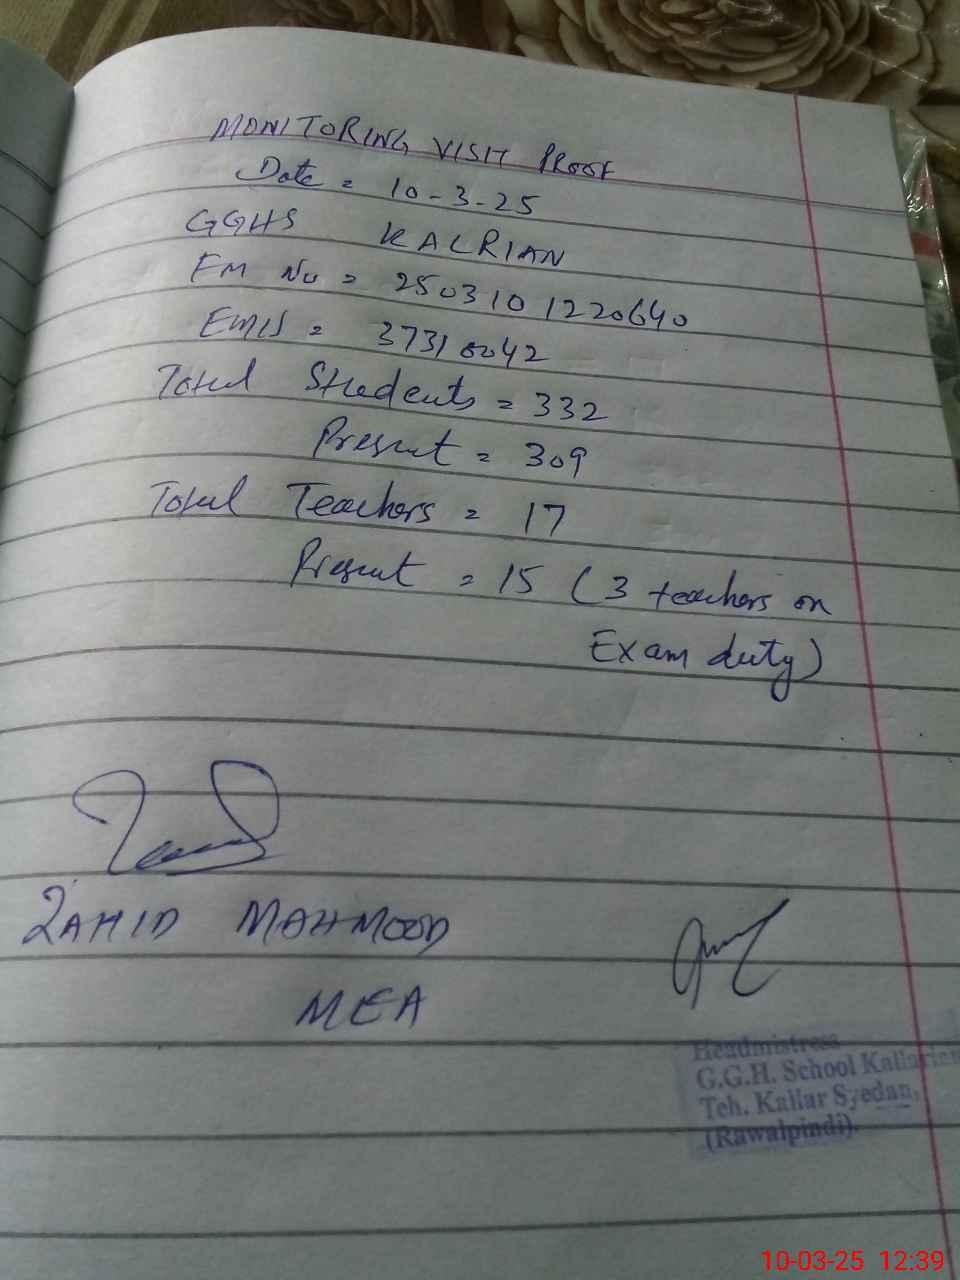 MONITORING VISIT PROOF
Date = 10-3-25
GGHS KALRIAN
FM No = 2503101220640
EMIS = 37310042
Total Students = 332
Present = 309
Total Teachers = 17
Present = 15 (3 teachers on
Exam duty)
ZAHID MAHMOOD
MEA
Headmistress
G.G.H. School Kallarian
Teh. Kallar Syedan,
(Rawalpindi).
10-03-25 12:39